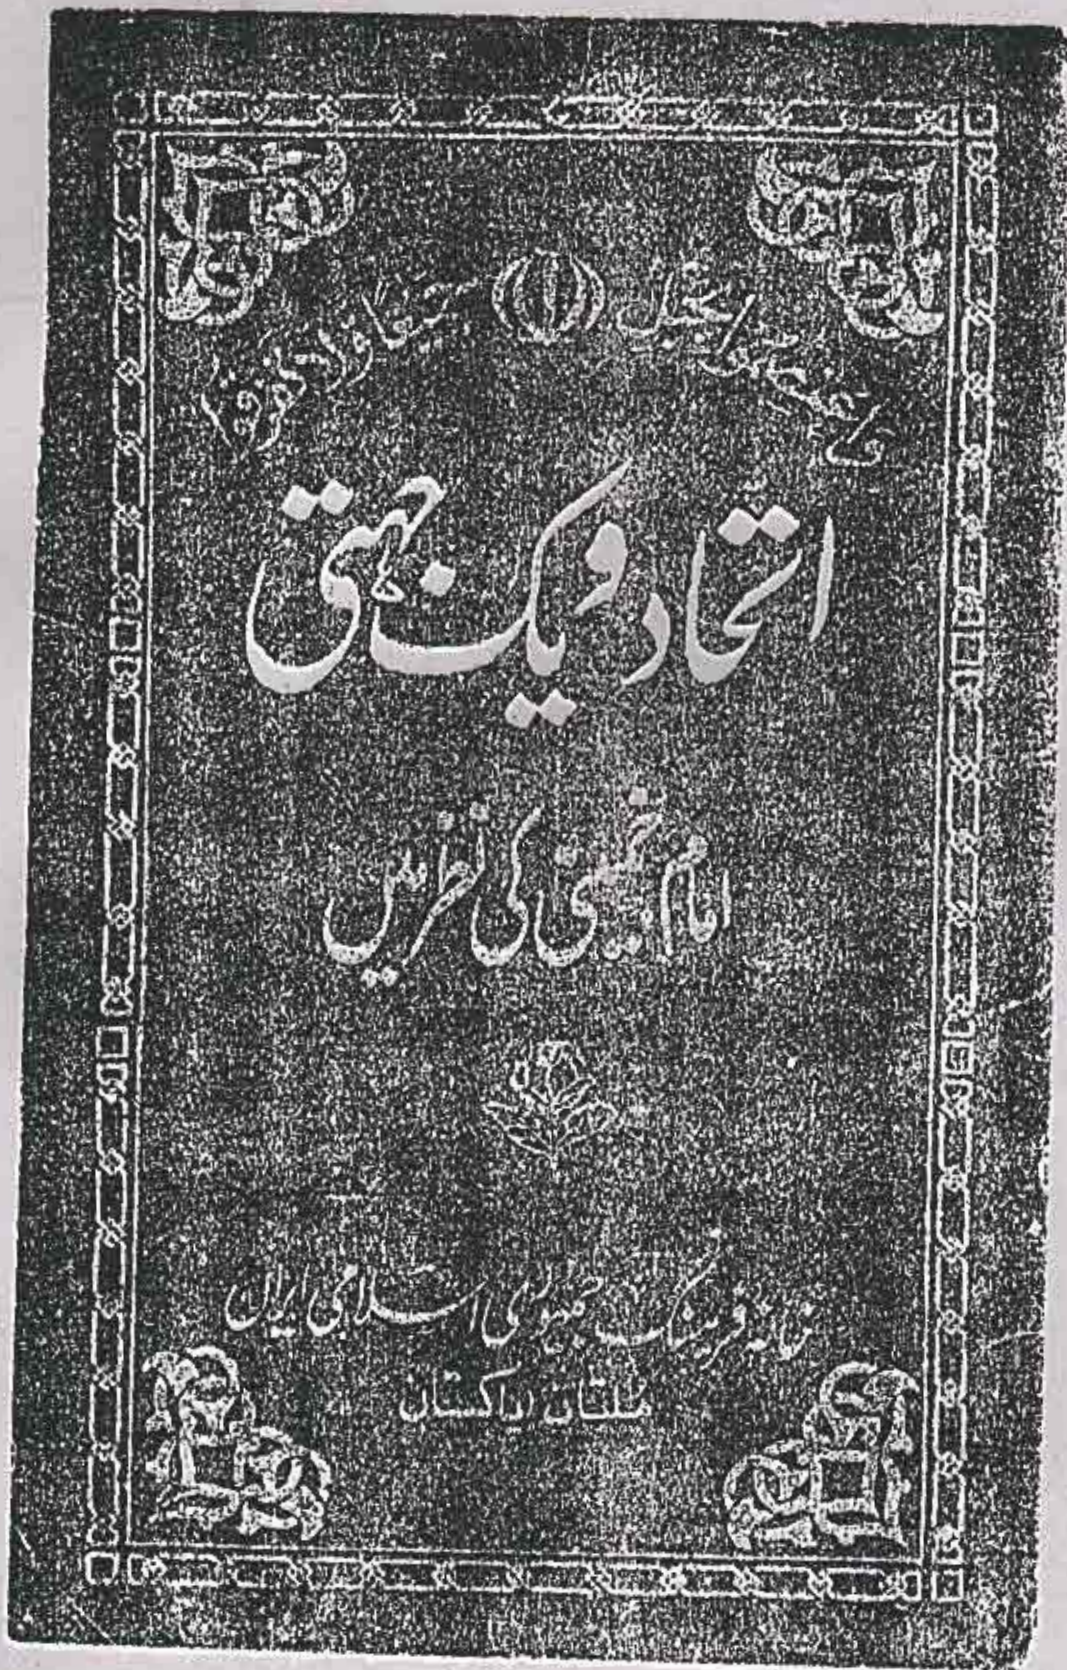 واعتصموا بحبل الله جمیعا ولا تفرقوا
اتحاد و یک جہتی
امام خمینی کی نظر میں
خانه فرهنگ جمهوری اسلامی ایران
ملتان پاکستان